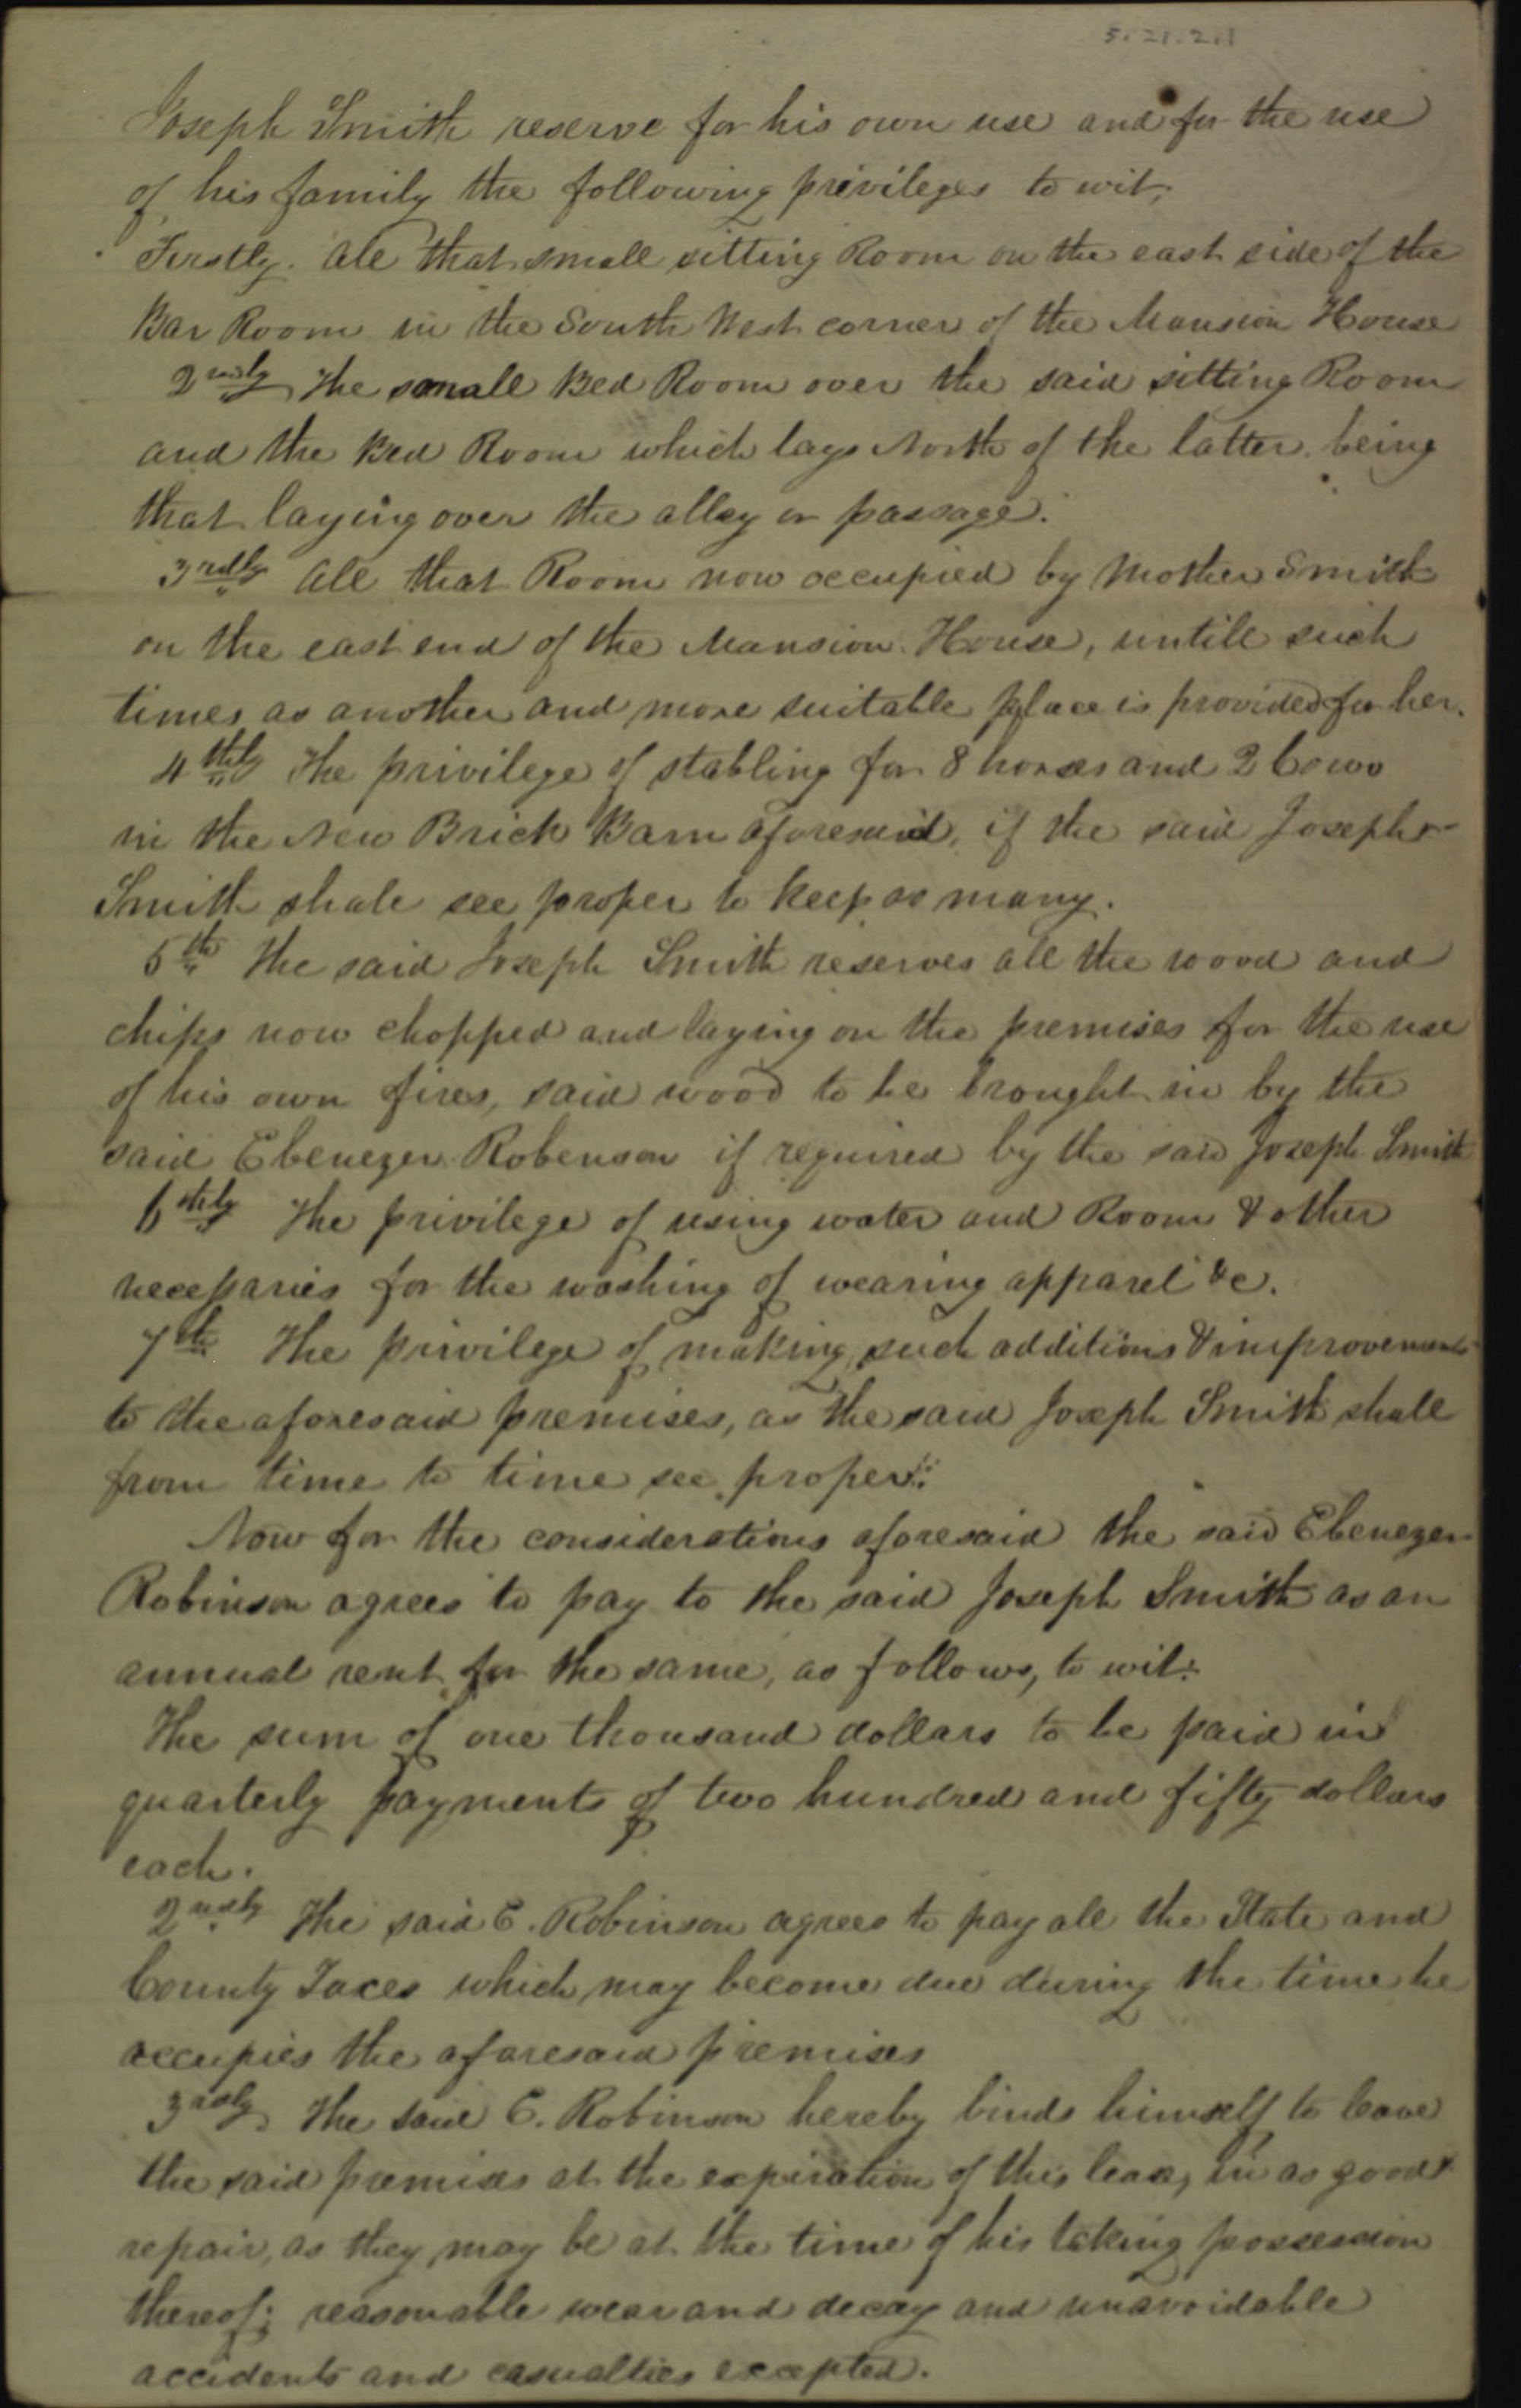 5.21.2.1
Joseph Smith reserve for his own use and for the use
of his family the following privileges to wit;
Firstly. All that small sitting Room on the east side of the
Bar Room in the South West corner of the Mansion House
2ndly The small Bed Room over the said sitting Room
and the Bed Room which lays North of the latter, being
that laying over the alley or passage.
3rdly All that Room now occupied by Mother Smith
on the east end of the Mansion House, untill such
times as another and more suitable place is provided for her.
4thly The privilege of stabling for 8 horses and 2 Cows
in the New Brick Barn aforesaid, if the said Joseph
Smith shall see proper to keep so many.
5th The said Joseph Smith reserves all the wood and
chips now chopped and laying on the premises for the use
of his own fires, said wood to be brought in by the
said Ebenezer Robenson if required by the said Joseph Smith
6thly The privilege of using water and Room & other
necessaries for the washing of wearing apparel &c.
7th The privilege of making such additions & improvements
to the aforesaid premises, as the said Joseph Smith shall
from time to time see proper:
Now for the considerations aforesaid the said Ebenezer
Robinson agrees to pay to the said Joseph Smith as an
annual rent for the same, as follows, to wit:
The sum of one thousand dollars to be paid in
quarterly payments of two hundred and fifty dollars
each.
2ndly The said E. Robinson agrees to pay all the State and
County Taxes which may become due during the time he
occupies the aforesaid premises
3rdly The said E. Robinson hereby binds himself to leave
the said premises at the expiration of this lease, in as good
repair, as they may be at the time of his taking possession
thereof; reasonable wear and decay and unavoidable
accidents and casualties excepted.